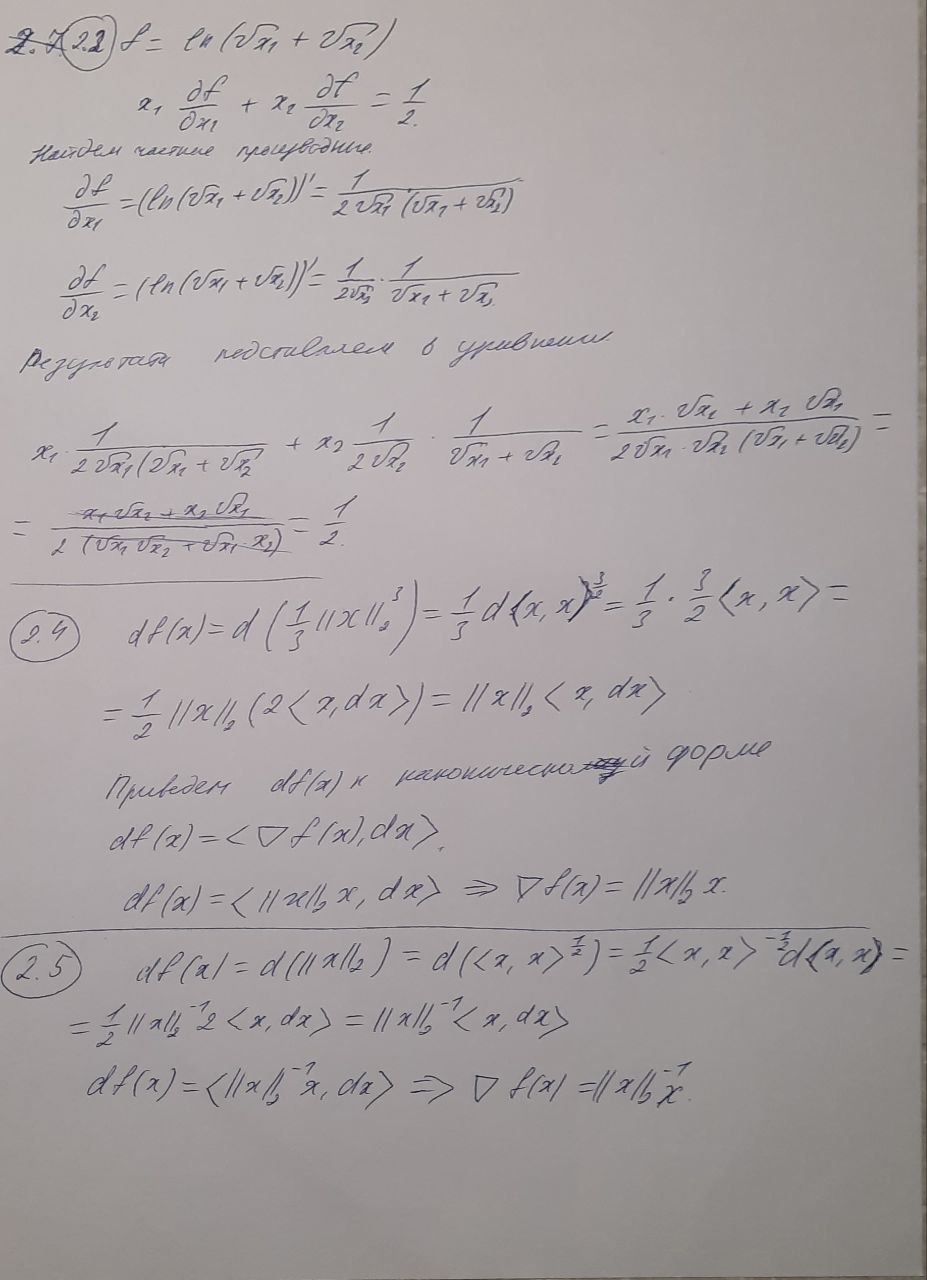 2.2 f = ln(√x₁ + √x₂)
x₁ ∂f/∂x₁ + x₂ ∂f/∂x₂ = 1/2.
Найдем частные производные.
∂f/∂x₁ = (ln(√x₁ + √x₂))' = 1/(2√x₁ (√x₁ + √x₂))
∂f/∂x₂ = (ln(√x₁ + √x₂))' = 1/(2√x₂) · 1/(√x₁ + √x₂)
Результаты подставляем в уравнение.
x₁ · 1/(2√x₁(√x₁ + √x₂) + x₂ 1/(2√x₂) · 1/(√x₁ + √x₂) = (x₁·√x₂ + x₂√x₁)/(2√x₁·√x₂(√x₁ + √x₂)) =
= (x₁√x₂ + x₂√x₁)/(2(√x₁√x₂ + √x₁·x₂)) = 1/2.
2.4 df(x) = d(1/3 ||x||₂³) = 1/3 d⟨x,x⟩^(3/2) = 1/3 · 3/2 ⟨x,x⟩ =
= 1/2 ||x||₂ (2⟨x,dx⟩) = ||x||₂ ⟨x,dx⟩
Приведем df(x) к канонической форме
df(x) = ⟨∇f(x),dx⟩.
df(x) = ⟨||x||₂ x, dx⟩ ⇒ ∇f(x) = ||x||₂ x.
2.5 df(x) = d(||x||₂) = d(⟨x,x⟩^(1/2)) = 1/2 ⟨x,x⟩^(-1/2) d⟨x,x⟩ =
= 1/2 ||x||₂⁻¹ 2⟨x,dx⟩ = ||x||₂⁻¹ ⟨x,dx⟩
df(x) = ⟨||x||₂⁻¹ x, dx⟩ ⇒ ∇f(x) = ||x||₂⁻¹ x.